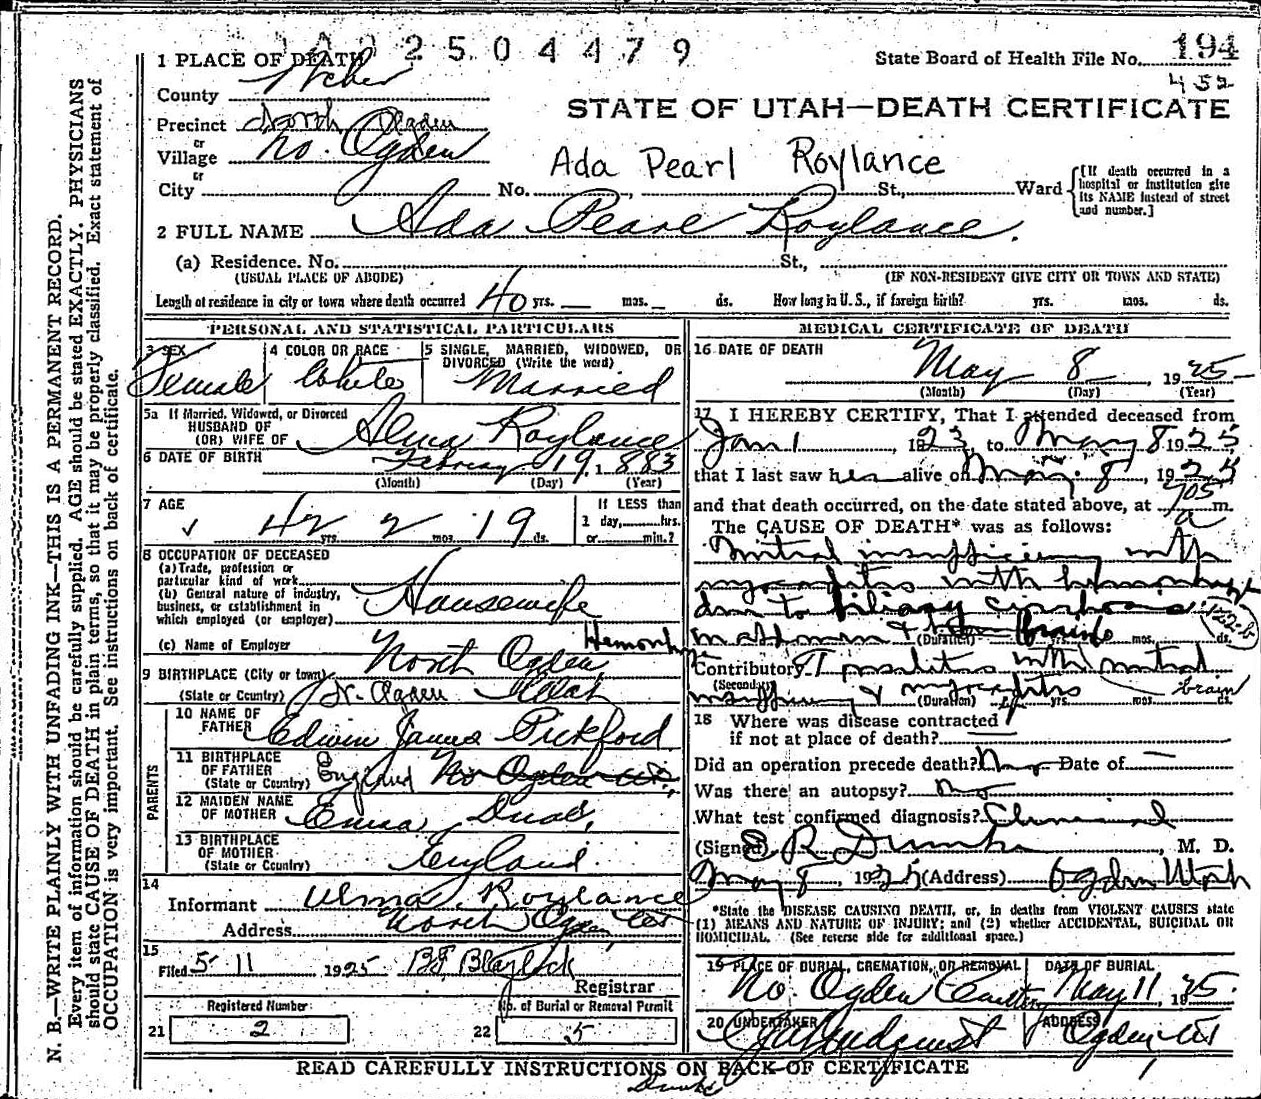 2504479
1 PLACE OF DEATH
State Board of Health File No. 194
452
County Weber
STATE OF UTAH—DEATH CERTIFICATE
Precinct North Ogden
or
Village No. Ogden
or
Ada Pearl Roylance
City No. St., Ward
[If death occurred in a hospital or institution give its NAME instead of street and number.]
2 FULL NAME Ada Pearl Roylance.
(a) Residence. No. St.,
(USUAL PLACE OF ABODE) (IF NON-RESIDENT GIVE CITY OR TOWN AND STATE)
Length of residence in city or town where death occurred 40 yrs. — mos. — ds. How long in U. S., if foreign birth? yrs. mos. ds.
PERSONAL AND STATISTICAL PARTICULARS
3 SEX Female
4 COLOR OR RACE White
5 SINGLE, MARRIED, WIDOWED, OR DIVORCED (Write the word) Married
5a If Married, Widowed, or Divorced
HUSBAND OF
(OR) WIFE OF Alma Roylance
6 DATE OF BIRTH February 19, 1883
(Month) (Day) (Year)
7 AGE 42 yrs. 2 mos. 19 ds.
If LESS than
1 day, hrs.
or min.?
8 OCCUPATION OF DECEASED
(a) Trade, profession or
particular kind of work
(b) General nature of industry,
business, or establishment in
which employed (or employer) Housewife
(c) Name of Employer
9 BIRTHPLACE (City or town) North Ogden
(State or Country) N. Ogden Utah
PARENTS
10 NAME OF
FATHER Edwin James Pickford
11 BIRTHPLACE
OF FATHER
(State or Country) England No Ogden Ut.
12 MAIDEN NAME
OF MOTHER Emma
13 BIRTHPLACE
OF MOTHER
(State or Country) England.
14
Informant Alma Roylance
Address North Ogden Ut
15
Filed 5-11 1925 Blaylock
Registrar
Registered Number
21 2
No. of Burial or Removal Permit
22 5
MEDICAL CERTIFICATE OF DEATH
16 DATE OF DEATH
May 8, 1925
(Month) (Day) (Year)
17 I HEREBY CERTIFY, That I attended deceased from
Jan 1, 1923, to May 8 1925
that I last saw her alive on May 8, 1925
and that death occurred, on the date stated above, at 705 a m.
The CAUSE OF DEATH* was as follows:
Mitral insufficiency with
myocarditis with hemorrhage
due to biliary cirrhosis
(Duration) yrs. mos. ds.
Hemorrhage brain
Contributory with mitral
(Secondary)
insufficiency & myocarditis
(Duration) yrs. mos. ds.
brain
18 Where was disease contracted
if not at place of death? —
Did an operation precede death? No Date of —
Was there an autopsy? no
What test confirmed diagnosis? Clinical
(Signed) E R Dumke, M. D.
May 8, 1925 (Address) Ogden Utah
*State the DISEASE CAUSING DEATH, or, in deaths from VIOLENT CAUSES state
(1) MEANS AND NATURE OF INJURY; and (2) whether ACCIDENTAL, SUICIDAL OR
HOMICIDAL. (See reverse side for additional space.)
19 PLACE OF BURIAL, CREMATION, OR REMOVAL DATE OF BURIAL
No. Ogden Cemetery May 11, 1925.
20 UNDERTAKER ADDRESS
Lindquist Ogden Ut
READ CAREFULLY INSTRUCTIONS ON BACK OF CERTIFICATE
Dumke
N. B.—WRITE PLAINLY WITH UNFADING INK—THIS IS A PERMANENT RECORD.
Every item of information should be carefully supplied. AGE should be stated EXACTLY. PHYSICIANS
should state CAUSE OF DEATH in plain terms, so that it may be properly classified. Exact statement of
OCCUPATION is very important. See instructions on back of certificate.